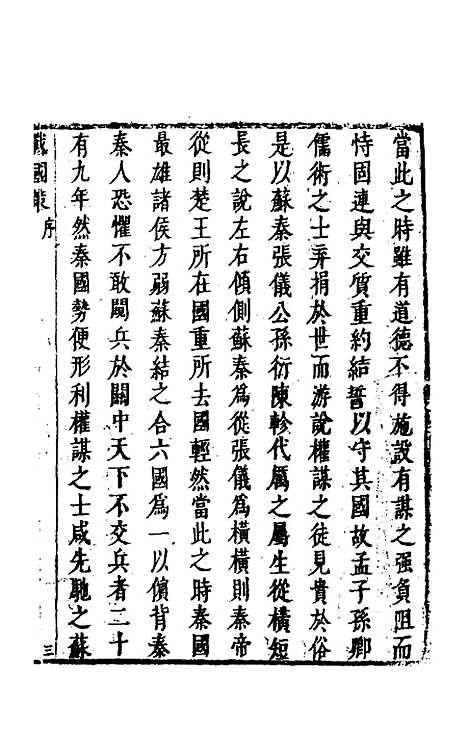 當此之時雖有道德不得施設有謀之强負阻而
恃固連與交質重約結誓以守其國故孟子孫卿
儒術之士弃捐於世而游說權謀之徒見貴於俗
是以蘇秦張儀公孫衍陳軫代厲之屬生從橫短
長之說左右傾側蘇秦爲從張儀爲橫橫則秦帝
從則楚王所在國重所去國輕然當此之時秦國
最雄諸侯方弱蘇秦結之合六國爲一以儐背秦
秦人恐懼不敢闚兵於關中天下不交兵者二十
有九年然秦國勢便形利權謀之士咸先馳之蘇
戰國策 序
三